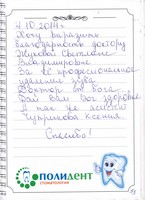 4.10.2014г.
Хочу выразить
благодарность доктору
Жуковой Светлане
Владимировне
За её профессионализм
удаления зуба.
Доктор от бога
Дай вам бог здоровья
А так же ассистен
Чуприкова Ксения.
Спасибо!
ПОЛИДЕНТ
СТОМАТОЛОГИЯ